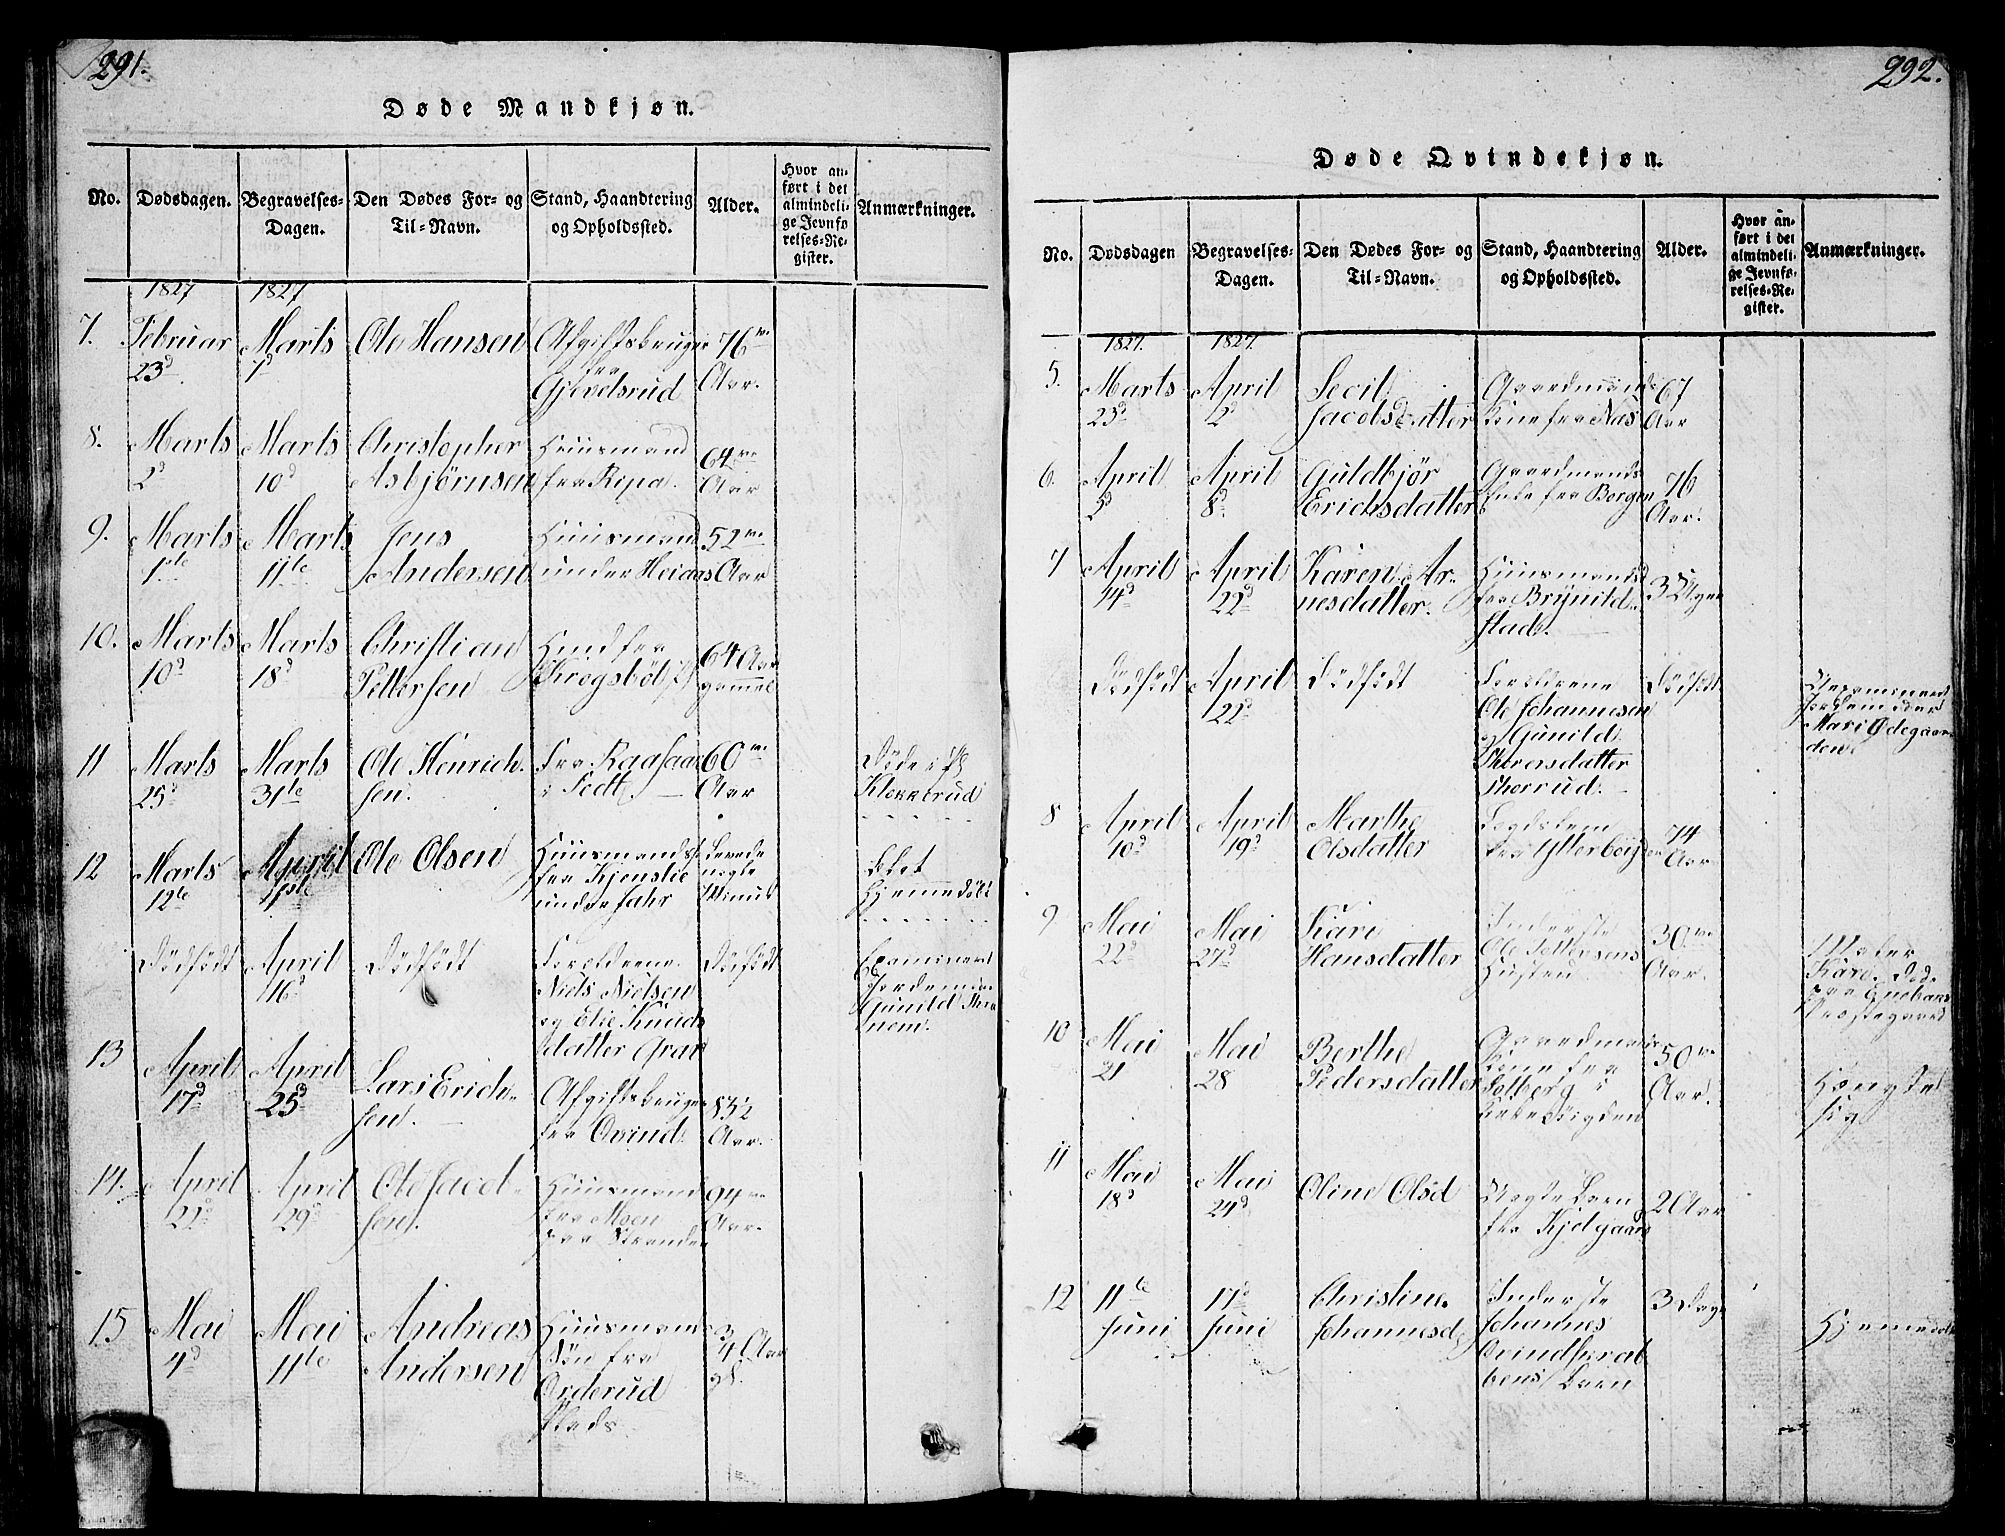 291.
Døde Mandkjøn.
No.
Dødsdagen.
Begravelses-
Dagen.
Den Dødes For- og
Til-Navn.
Stand, Haandtering
og Opholdssted.
Alder.
Hvor an-
ført i det
almindeli-
ge Jevnfø-
relses-Re-
gister.
Anmærkninger.
1827
1827
7.
Februar
23d
Marts
7d
Ole Hansen
Afgiftsbruger
fra
Gjevelsrud
76
Aar.
8.
Marts
2d
Marts
10d
Christopher
Asbjørnsen
Huusmand
fra Ripa.
64
Aar
9.
Marts
1ste
Marts
11te
Jens
Andersen
Huusmand
under Heiaas
52
Aar
10.
Marts
10d
Marts
18d
Christian
Pettersen
fra
Krogsbøl
64 Aar
gammel
11
Marts
25d
Marts
31te
Ole Henrich-
sen.
fra Raasaa
i Fedt
60
Aar
Døde i
12
Marts
12te
April
1ste
Ole Olsen
Huusmands
fra Kjenslie
under Fahr
Levede
nogle
Minut
Hjemmedøbt
Dødfødt
April
16d
Dødfødt
Foreldrene
Niels Nielsen
og Elie Knuds
datter Grav
Dødfødt
Examineret
Jordemoder
Gunild
13
April
17d
April
25d
Lars Erich-
sen.
Afgiftsbruger
fra Qvind
83½
Aar.
14.
April
21d
April
29d
Ole Jacob-
sen.
Huusmand
fra Moen
paa Stranden
94
Aar.
15
Mai
4d
Mai
11te
Andreas
Andersen
Huusmands
Søn fra
Orderud
Plads
3/4 Aar
gl.
292.
Døde Qvindekjøn.
No.
Dødsdagen
Begravelses-
Dagen.
Den Dødes For- og
Til-Navn.
Stand, Haandtering
og Opholdssted.
Alder.
Hvor an-
ført i det
almindeli-
ge Jevnfø-
relses-Re-
gister.
Anmærkninger.
1827.
1827.
5.
Marts
23d
April
2d
Secil
Jacobsdatter
Gaardmands
Kone fra Nas
67
Aar
6.
April
5d
April
8d
Guldbjør
Erichsdatter
Gaardmands
Enke fra Borgen
76
Aar.
7
April
14d
April
22d
Karen Ar-
nesdatter.
Huusmands
fra Brynild
stad.
3 Uger
Dødfødt
April
22d
Dødfødt
Foreldrene
Ole Johannesen
og Gunild
Thoersdatter
Thorrud.
Dødfødt
Uexamineret
Jordemoder
Mari Ødegaar-
den
8
April
10d
April
19d
Marthe
Olsdatter
Legdslem
fra Ytterbøigden
74
Aar
9
Mai
22d
Mai
27d
Kari
Hansdatter
Inderste
Ole Pettersens
Husten
30
Aar.
Kari
10
Mai
21
Mai
28
Berthe
Pedersdatter
Gaardmands
Kone fra
Solberg i
50
Aar.
11
Mai
18d
Mai
24d
Oline Olsd
Uegte Barn
fra Kjelgaard
2 Aar
12
11te
Juni
17d
Juni
Christine
Johannesd
Inderste
Johannes
Barn
3 Dage
Hjemmedøbt